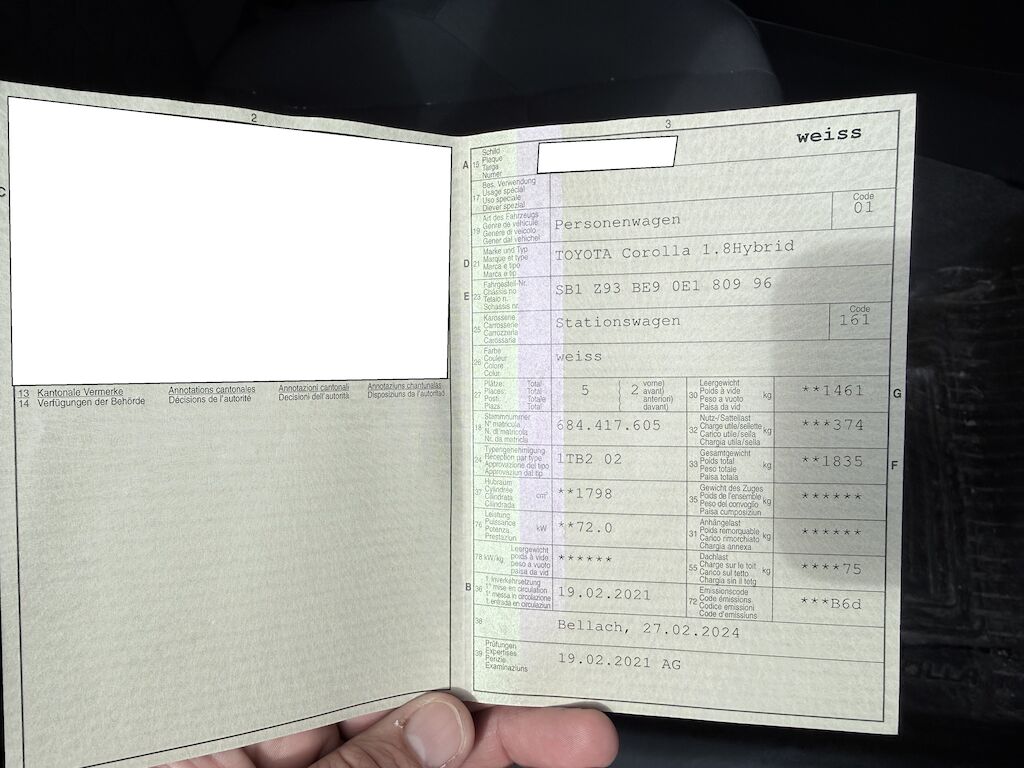 2
C
13 Kantonale Vermerke Annotations cantonales Annotazioni cantonali Annotaziuns chantunalas
14 Verfügungen der Behörde Décisions de l'autorité Decisioni dell'autorità Disposiziuns da l'autoritad
3
weiss
A 15 Schild
Plaque
Targa
Numer
17 Bes. Verwendung
Usage spécial
Uso speciale
Diever spezial
19 Art des Fahrzeugs
Genre de véhicule
Genere di veicolo
Gener dal vehichel
Personenwagen
Code
01
D 21 Marke und Typ
Marque et type
Marca e tipo
Marca e tip
TOYOTA Corolla 1.8Hybrid
E 23 Fahrgestell-Nr.
Châssis no
Telaio n.
Schassis nr.
SB1 Z93 BE9 0E1 809 96
25 Karosserie
Carrosserie
Carrozzeria
Carossaria
Stationswagen
Code
161
26 Farbe
Couleur
Colore
Colur
weiss
27 Plätze: Total
Places: Total
Posti: Totale
Plazs: Total
5 ( 2 vorne)
avant)
anteriori)
davant)
30 Leergewicht
Poids à vide
Peso a vuoto
Paisa da vid
kg
**1461
G
18 Stammnummer
N° matricule
N. di matricola
Nr. da matricla
684.417.605
32 Nutz-/Sattellast
Charge utile/sellette
Carico utile/sella
Chargia utila/sella
kg
***374
24 Typengenehmigung
Réception par type
Approvazione del tipo
Approvaziun dal tip
1TB2 02
33 Gesamtgewicht
Poids total
Peso totale
Paisa totala
kg
**1835
F
37 Hubraum
Cylindrée
Cilindrata
Cilindrada
cm³
**1798
35 Gewicht des Zuges
Poids de l'ensemble
Peso del convoglio
Paisa cumposiziun
kg
******
76 Leistung
Puissance
Potenza
Prestaziun
kW
**72.0
31 Anhängelast
Poids remorquable
Carico rimorchiato
Chargia annexa
kg
******
78 kW/kg Leergewicht
poids à vide
peso a vuoto
paisa da vid
******
55 Dachlast
Charge sur le toit
Carico sul tetto
Chargia sin il tetg
kg
****75
B 36 1. Inverkehrsetzung
1re mise en circulation
1a messa in circolazione
1. entrada en circulaziun
19.02.2021
72 Emissionscode
Code émissions
Codice emissioni
Code d'emissiuns
***B6d
38
Bellach, 27.02.2024
39 Prüfungen
Expertises
Perizie
Examinaziuns
19.02.2021 AG